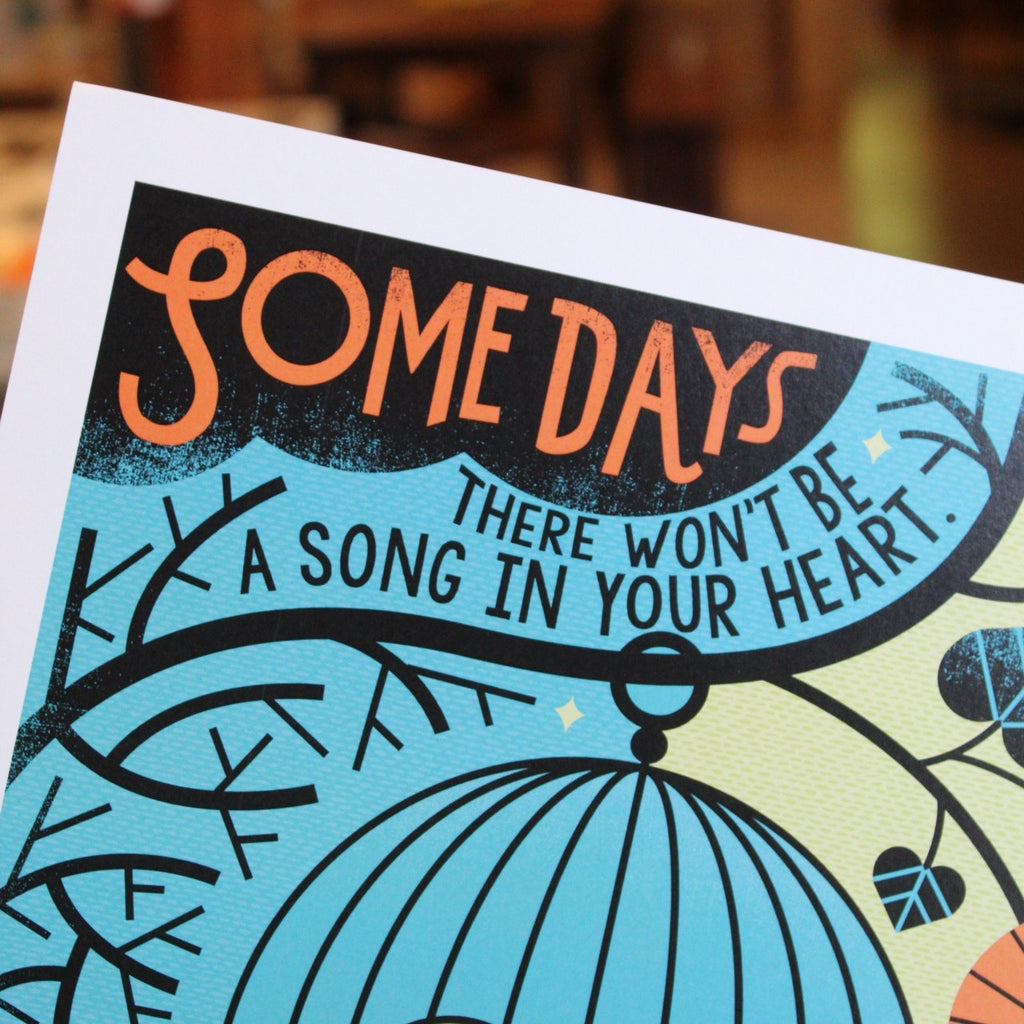 SOME DAYS
THERE WON'T BE
A SONG IN YOUR HEART.